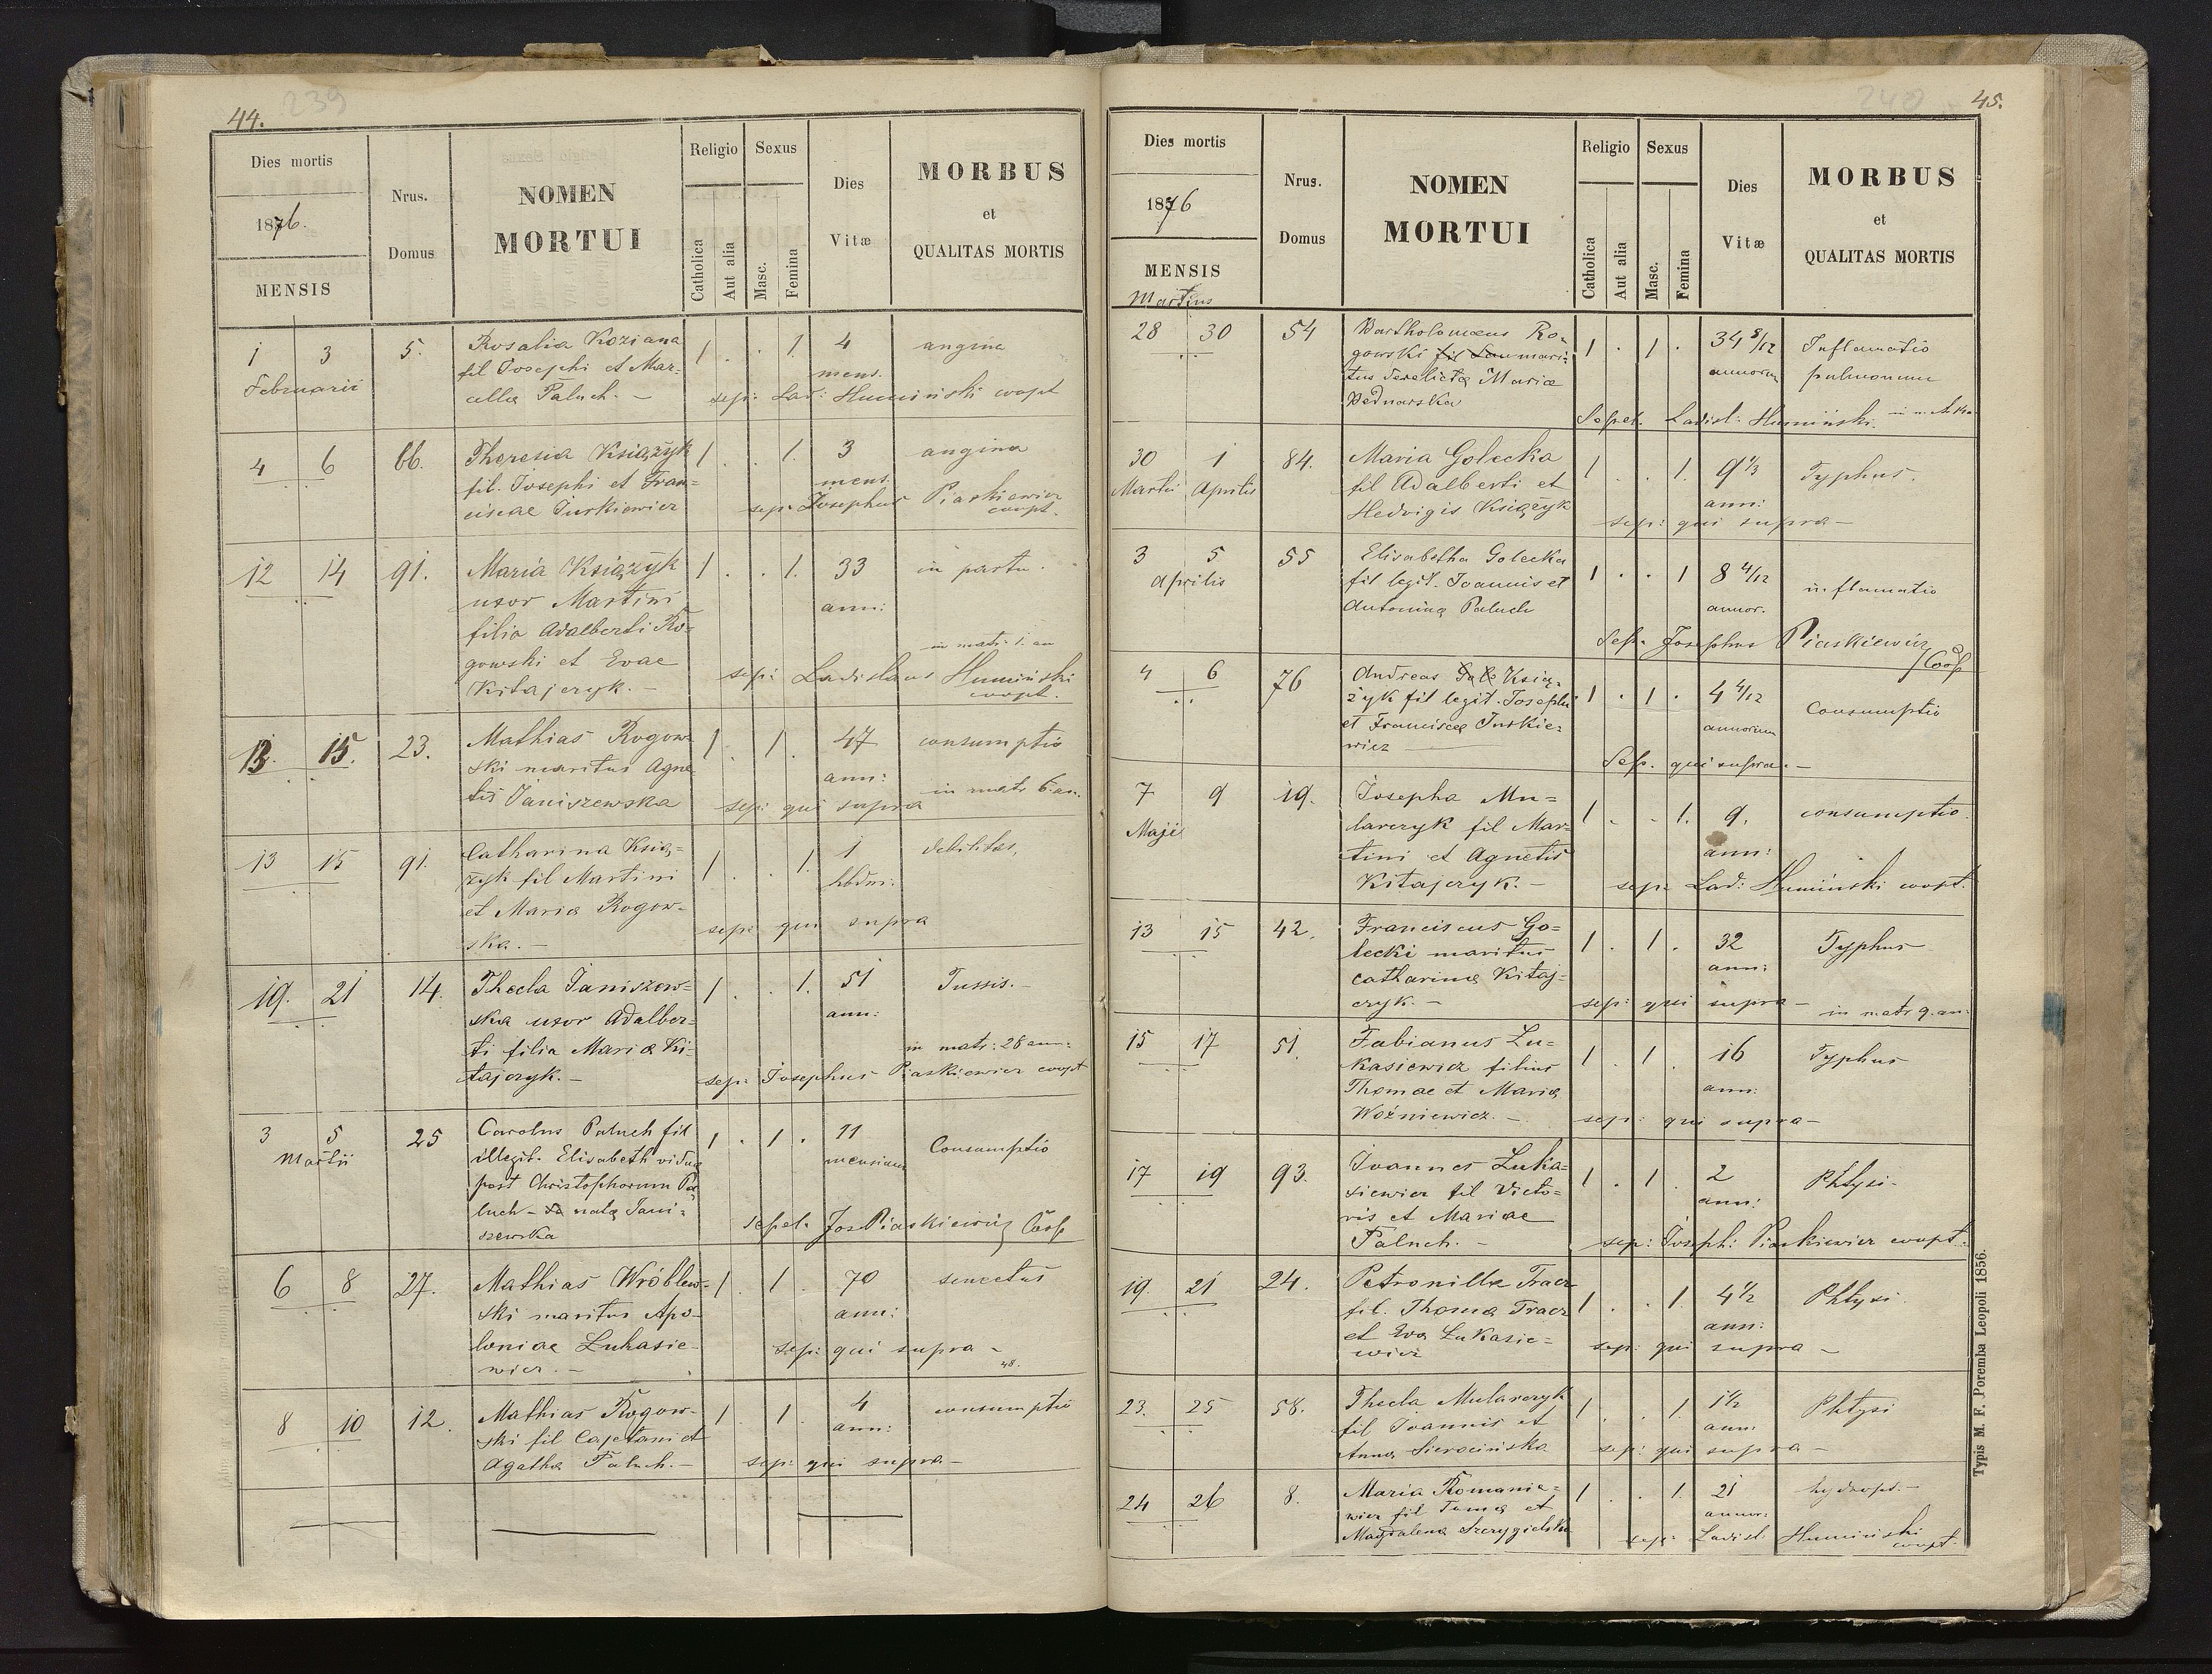 44.
239
Dies mortis
1876.
MENSIS
Nrus.
Domus
NOMEN
MORTUI
Religio
Catholica
Aut alia
Sexus
Masc.
Femina
Dies
Vitæ
MORBUS
et
QUALITAS MORTIS
1 3 5. Rosalia Koziana 1 . . 1. 4 angina
Februarii fil Josephi et Mar- mens.
cella Paluch. - sep: Lad: Humiński coopt
4 6 66. Theresia Książyk 1 . . 1. 3 angina
fil. Josephi et Fran- mens.
ciscae Turkiewicz sep: Josephus Piaskiewicz
coopt.
12 14 91. Maria Książyk 1 . . 1. 33 in partu.
uxor Martini ann:
filia Adalberti Ro-
gowski et Evae in matr: 1. an
Kitajczyk. - sep: Ladislaus Humiński
coopt.
13. 15. 23. Mathias Rogow- 1 . 1 . 47 consumptio
ski maritus Agne ann:
tis Janiszewska sep: qui supra in matr 6 an.
13 15 91. Catharina Ksią- 1 . . 1. 1 debilitas.
żyk fil Martini hbdm:
et Maria Rogow-
ska. - sep: qui supra
19. 21 14. Thecla Janiszew- 1 . . 1. 51 Tussis. -
ska uxor Adalber- ann:
ti filia Maria Ki- in matr: 28 ann:
tajczyk. - sep: Josephus Piaskiewicz coopt
3 5 25 Carolus Paluch fil 1 . 1 . 11 Consumptio
Martii illegit. Elisabeth vidua mensium
post Christophorum Pa
luch - nata Jani-
szewska sepel. Jos Piaskiewicz Coop
6 8 27. Mathias Wróblew- 1 . 1 . 70 senectus
ski maritus Apo- ann:
loniae Lukasie- sep: qui supra -
wicz. - 48.
8 10 12. Mathias Rogow- 1 . 1 . 4 consumptio
ski fil Cajetani et ann:
Agatha Paluch. - sep: qui supra -
45.
240
Dies mortis
1876
MENSIS
Martius
Nrus.
Domus
NOMEN
MORTUI
Religio
Catholica
Aut alia
Sexus
Masc.
Femina
Dies
Vitæ
MORBUS
et
QUALITAS MORTIS
28 30 54 Bartholomæus Ro- 1 . 1 . 34 8/12 Inflamatio
gowski fil mari- annorum pulmonum
tus derelicta Maria
Bednarska
Sepel. Ladisl: Humiński.
30 1 84. Maria Golecka 1 . . 1. 9 1/3 Typhus.
Martii Aprilis fil Adalberti et ann:
Hedvigis Książyk sep: qui supra -
3 5 55 Elisabetha Golecka 1 . . 1 8 4/12 inflamatio
Aprilis fil legit. Joannis et annor.
Antonina Paluch
Sep. Josephus Piaskiewicz
Coop
4 6 76 Andreas Ksią- 1 . 1 . 4 4/12 Consumptio
żyk fil legit. Josephi annorum
et Francisca Turkie-
wicz Sep. qui supra. -
7 9 19. Josepha Mu- 1 . . 1. 9. consumptio.
Maji larczyk fil Mar- ann:
tini et Agnetis
Kitajczyk. - sep: Lad: Humiński coopt.
13 15 42. Franciscus Go- 1 . 1 . 32 Typhus
lecki maritus ann:
Catharina Kitaj-
czyk. - sep: qui supra - in matr 9. an:
15 17 51. Fabianus Lu- 1 . 1 . 16 Typhus
kasiewicz filius ann:
Thomae et Maria
Woźniewicz. - sep: qui supra -
17 19 93. Joannes Luka- 1 . 1 . 2 Phtysi-
siewicz fil Victo- ann:
ris et Mariae
Paluch. - sep: Joseph: Piaskiewicz coopt.
19. 21 24. Petronilla Tracz 1 . . 1. 4 1/2 Phtysi.
fil. Thoma Tracz ann:
et Eva Lukasie- sep: qui supra -
wicz
23. 25 58. Thecla Mularczyk 1 . . 1. 1 1/2 Phtysi
fil Joannis et ann:
Anna Sierocińska sep: qui supra -
24 26 8. Maria Romanie- 1 . . 1. 21 hydrops. -
wicz fil Toma et annor:
Magdalena Szczygielska sep: Ladisl Humiński
coopt.
Typis M. F. Poremba Leopoli 1856.